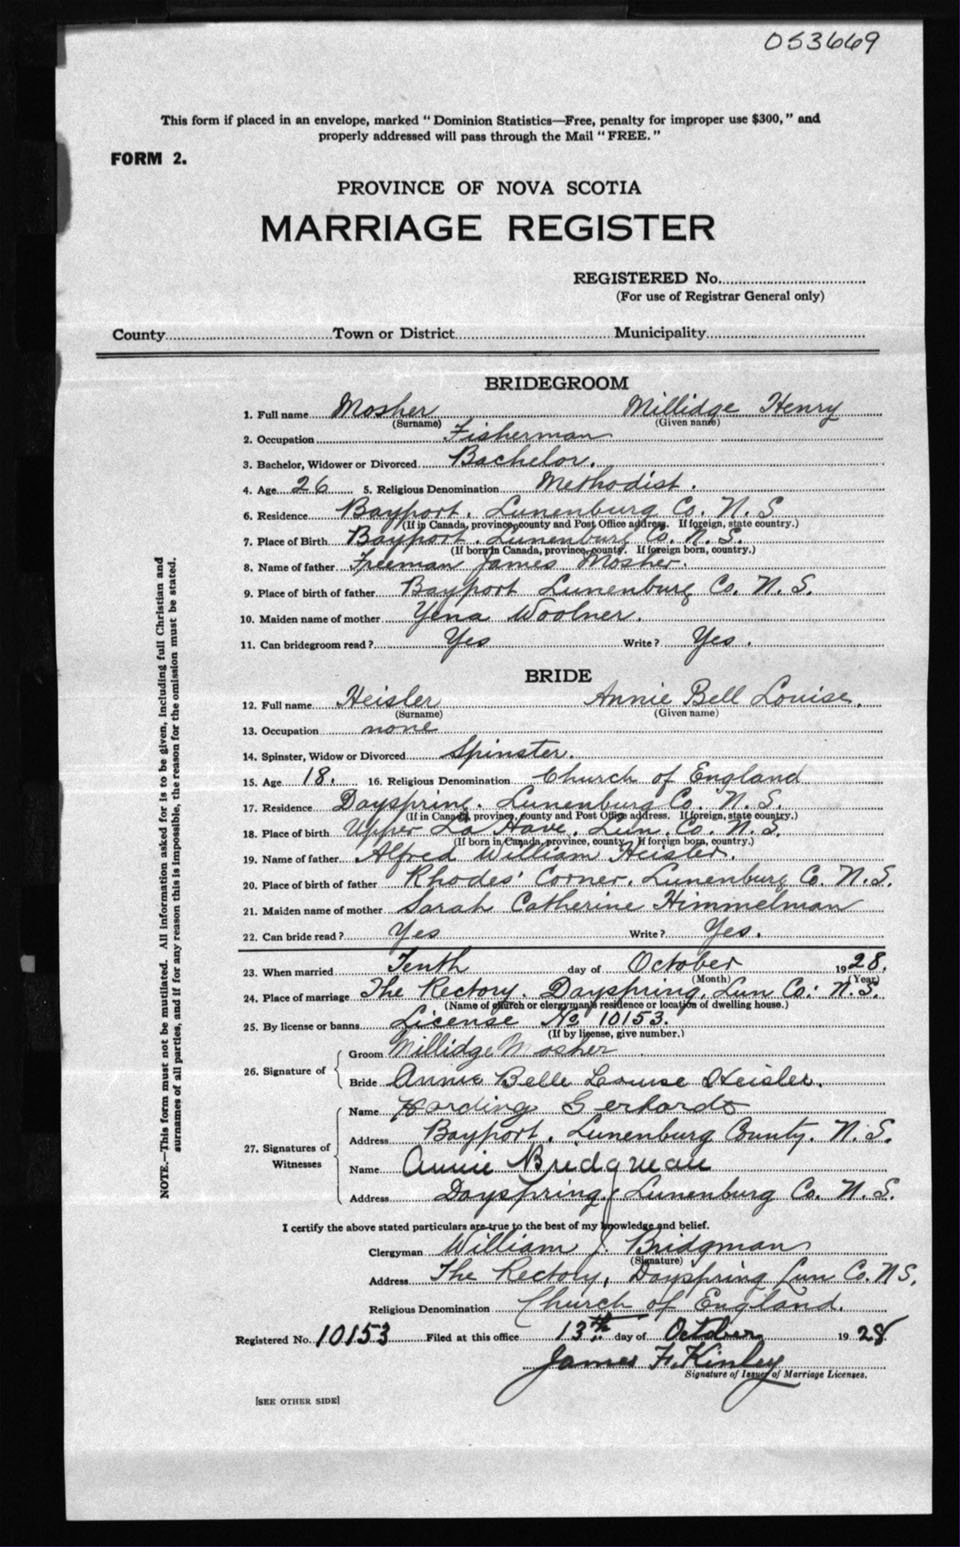 053669
This form if placed in an envelope, marked "Dominion Statistics—Free, penalty for improper use $300," and
properly addressed will pass through the Mail "FREE."
FORM 2.
PROVINCE OF NOVA SCOTIA
MARRIAGE REGISTER
REGISTERED No.
(For use of Registrar General only)
County Town or District Municipality
BRIDEGROOM
1. Full name Mosher Millidge Henry
(Surname) (Given name)
2. Occupation Fisherman
3. Bachelor, Widower or Divorced Bachelor.
4. Age 26 5. Religious Denomination Methodist.
6. Residence Bayport. Lunenburg Co. N.S
(If in Canada, province, county and Post Office address. If foreign, state country.)
7. Place of Birth Bayport. Lunenburg Co. N.S.
(If born in Canada, province, county. If foreign born, country.)
8. Name of father Freeman James Mosher.
9. Place of birth of father Bayport Lunenburg Co. N.S.
10. Maiden name of mother Yena Woolner.
11. Can bridegroom read? Yes Write? Yes.
BRIDE
12. Full name Heisler Annie Bell Louise.
(Surname) (Given name)
13. Occupation none
14. Spinster, Widow or Divorced Spinster.
15. Age 18. 16. Religious Denomination Church of England
17. Residence Dayspring. Lunenburg Co. N.S.
(If in Canada, province, county and Post Office address. If foreign, state country.)
18. Place of birth Upper La Have. Lun. Co. N.S.
(If born in Canada, province, county. If foreign born, country.)
19. Name of father Alfred William Heisler.
20. Place of birth of father Rhodes' Corner. Lunenburg Co. N.S.
21. Maiden name of mother Sarah Catherine Himmelman
22. Can bride read? Yes Write? Yes.
23. When married Tenth day of October 1928.
(Month) (Year)
24. Place of marriage The Rectory. Dayspring, Lun Co: N.S.
(Name of church or clergyman's residence or location of dwelling house.)
25. By license or banns. License No 10153.
(If by license, give number.)
26. Signature of
Groom Millidge Mosher
Bride Annie Belle Louise Heisler.
27. Signatures of Witnesses
Name Harding Gerhardt
Address Bayport. Lunenburg County. N.S.
Name Annie Bridgman
Address Dayspring. Lunenburg Co. N.S.
I certify the above stated particulars are true to the best of my knowledge and belief.
Clergyman William J. Bridgman
(Signature)
Address The Rectory, Dayspring Lun Co. N S.
Religious Denomination Church of England.
Registered No. 10153 Filed at this office 13th day of October 1928
James F. Kinley
Signature of Issuer of Marriage Licenses.
[SEE OTHER SIDE]
NOTE.—This form must not be mutilated. All information asked for is to be given, including full Christian and
surnames of all parties, and if for any reason this is impossible, the reason for the omission must be stated.